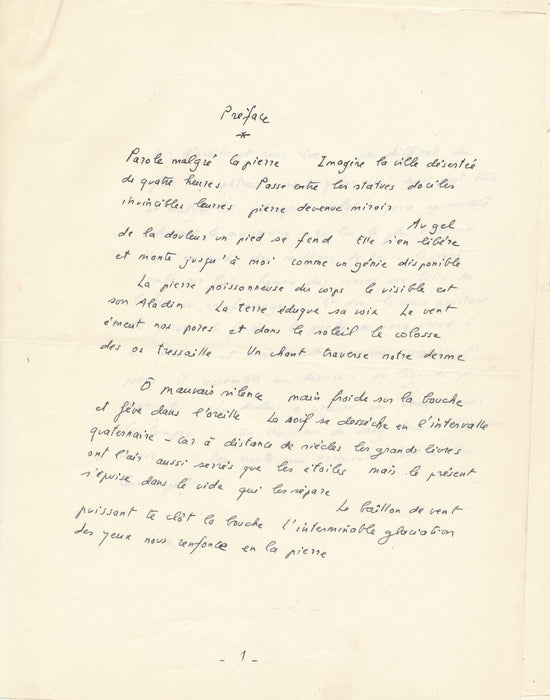 Préface
*
Parole malgré la pierre Imagine la ville désertée
de quatre heures Passe entre les statues dociles
invincibles leurres pierre devenue miroir
Au gel
de la douleur un pied se fend Elle s'en libère
et monte jusqu'à moi comme un génie disponible
La pierre poissonneuse du corps le visible est
son Aladin La terre éduque sa voix Le vent
émeut nos pores et dans le soleil le colosse
des os tressaille Un chant traverse notre derme
Ô mauvais silence main froide sur la bouche
et fève dans l'oreille La soif se dessèche en l'intervalle
quaternaire - Car à distance de siècles les grands livres
ont l'air aussi serrés que les étoiles mais le présent
s'épuise dans le vide qui les sépare
Le bâillon de vent
puissant te clôt la bouche l'interminable glaciation
des yeux nous renfonce en la pierre
- 1 -